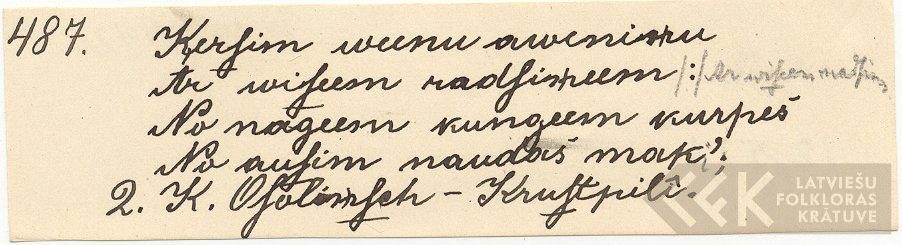 487. Kersim weenu aweniņu
Ar wiseem radsiņeem: // Ar wiseem radsim
No nageem kungeem kurpes
No ausim naudas mak';
2. K. Osoliņsch - Krustpilī.
LATVIEŠU
FOLKLORAS
KRĀTUVE